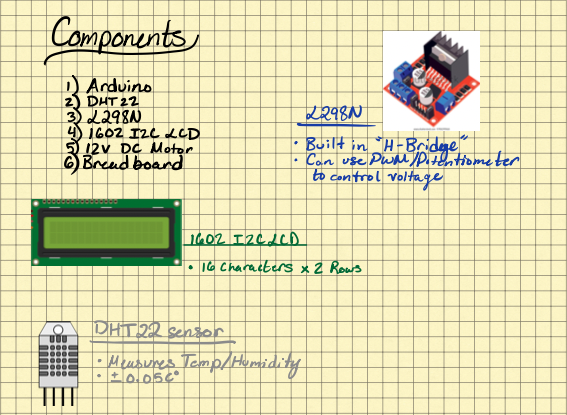 Components
1) Arduino
2) DHT22
3) L298N
4) 1602 I2C LCD
5) 12V DC Motor
6) Breadboard
L298N
• Built in "H-Bridge"
• Can use PWM/Potentiometer
to control voltage
1602 I2C LCD
• 16 Characters x 2 Rows
DHT22 sensor
• Measures Temp/Humidity
• ±0.05C°